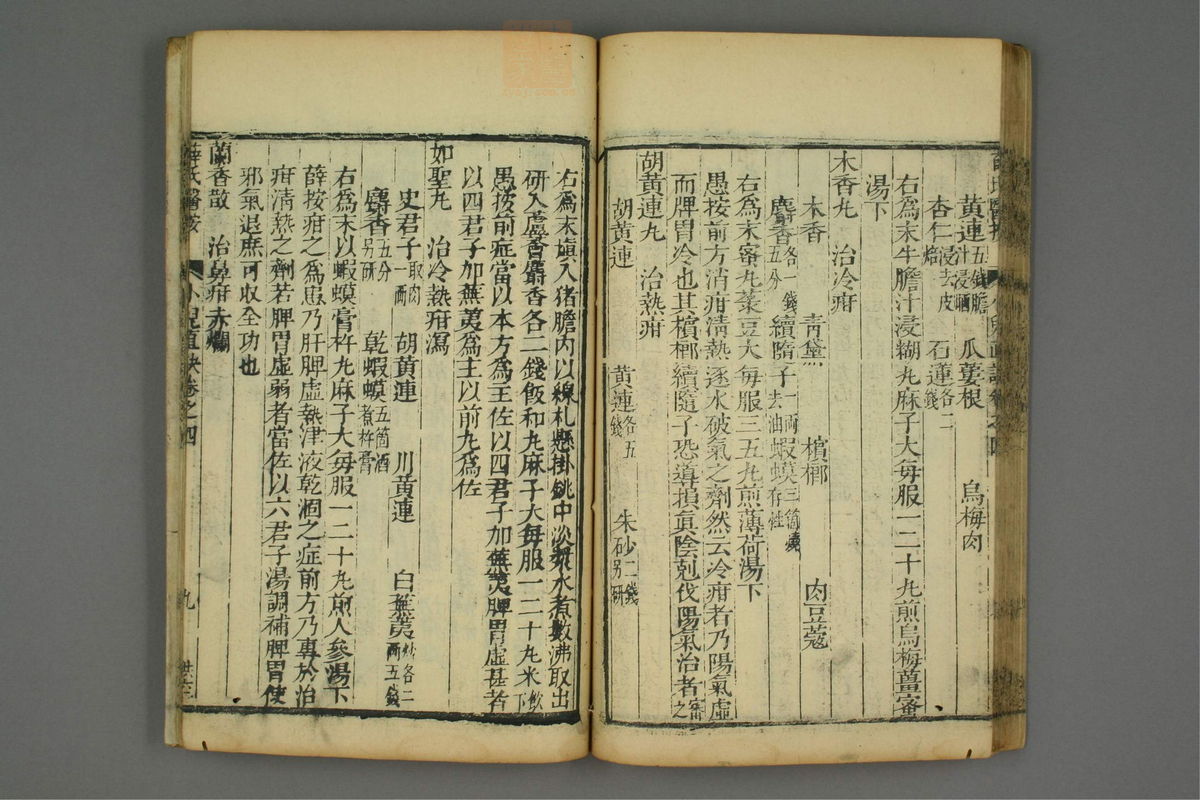 黃連五錢膽汁浸晒 瓜蔞根 烏梅肉
杏仁浸去皮焙 石蓮各二錢
右為末牛膽汁浸糊丸麻子大每服一二十丸煎烏梅薑蜜
湯下
木香丸 治冷疳
木香 青黛 檳榔 肉豆蔻
麝香各一錢五分 續隨子一両去油 蝦蟆三箇燒存性
右為末蜜丸菉豆大每服三五丸煎薄荷湯下
愚按前方消疳清熱逐水破氣之劑然云冷疳者乃陽氣虛
而脾胃冷也其檳榔續隨子恐導損眞陰剋伐陽氣治者審之
胡黃連丸 治熱疳
胡黃連 黃連各五錢 朱砂二錢另研
右為末塡入猪膽内以線札懸掛銚中淡漿水煮數沸取出
研入蘆薈麝香各二錢飯和丸麻子大每服一二十丸米飲下
愚按前症當以本方為主佐以四君子加蕪荑脾胃虛甚者
以四君子加蕪荑為主以前丸為佐
如聖丸 治冷熱疳瀉
史君子取肉一両 胡黃連 川黃連 白蕪荑炒各二両五錢
麝香五分另研 乾蝦蟆五箇酒煮杵膏
右為末以蝦蟆膏杵丸麻子大每服一二十丸煎人參湯下
薛按疳之為患乃肝脾虛熱津液乾涸之症前方乃專於治
疳清熱之劑若脾胃虛弱者當佐以六君子湯調補脾胃使
邪氣退庶可收全功也
蘭香散 治鼻疳赤爛
薛氏醫按 小兒直訣卷之四 九